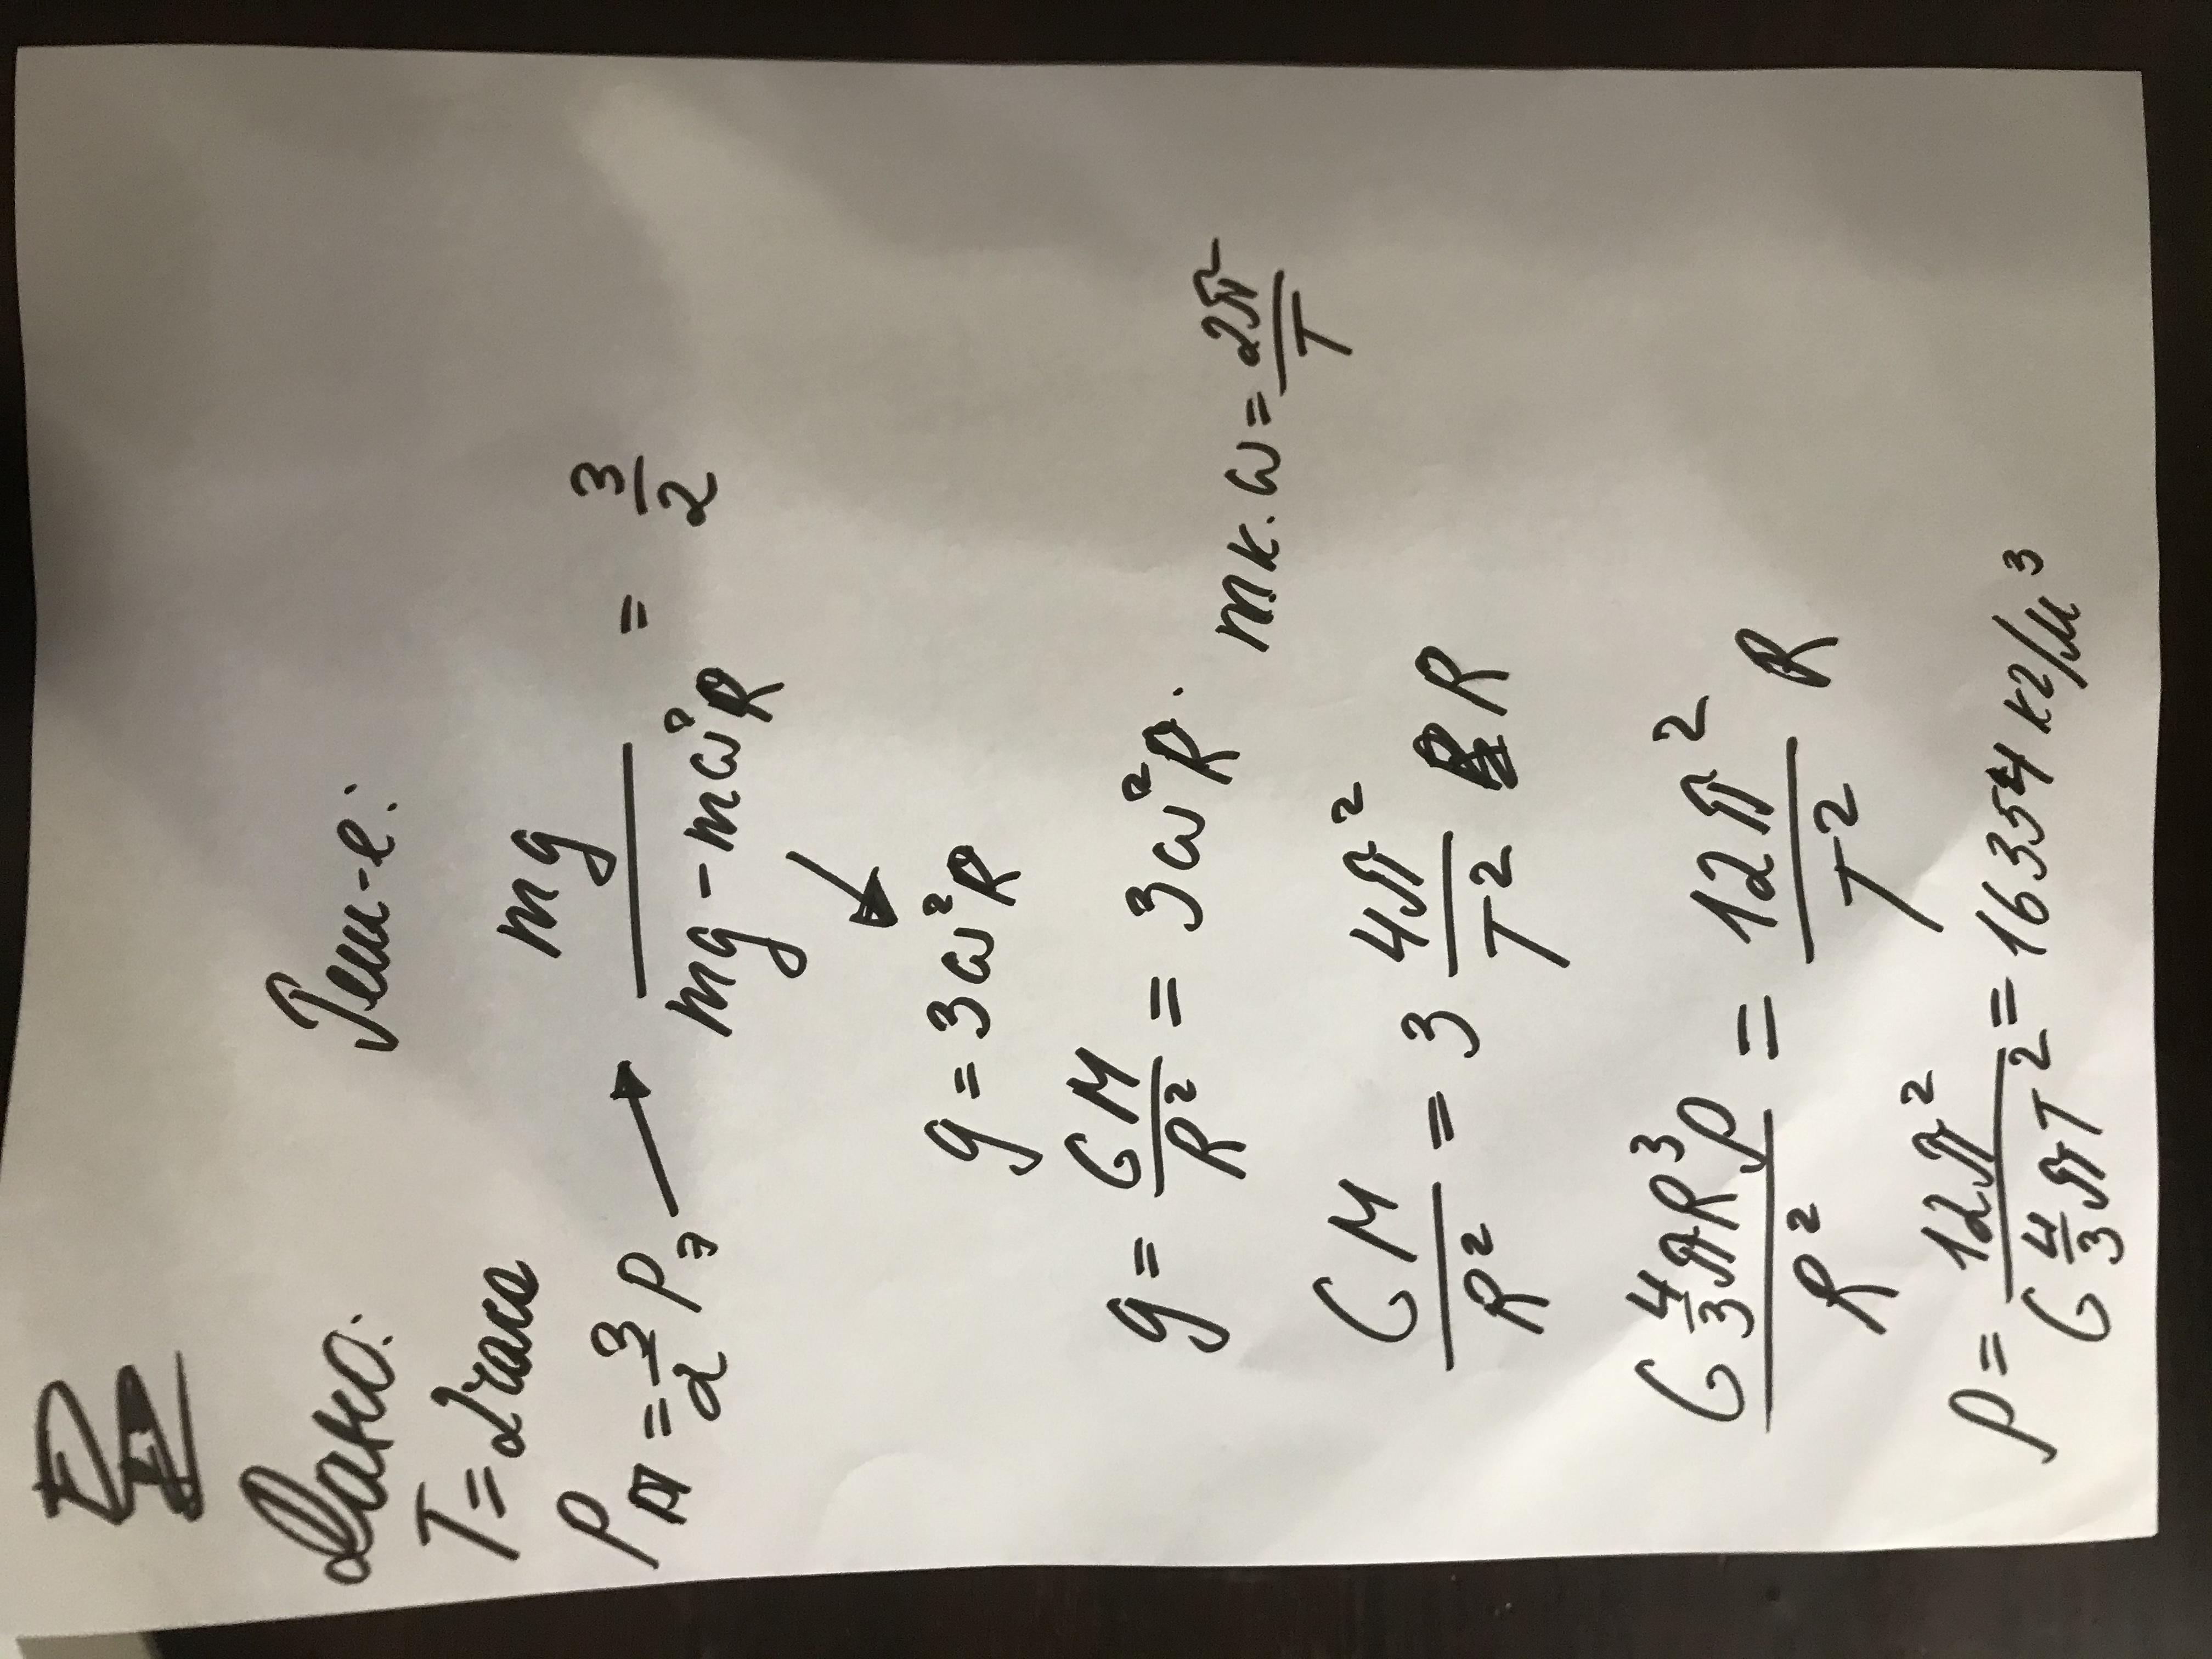 Дано:
Реш-е:
T = 2 часа
Pп = 3/2 Pэ → mg / (mg - mω²R) = 3/2
g = 3ω²R
g = GM/R² = 3ω²R. т.к. ω = 2π/T
GM/R² = 3 4π²/T² R
G 4/3 πR³ρ / R² = 12π²/T² R
ρ = 12π² / (G 4/3 πT²) = 16354 кг/м³